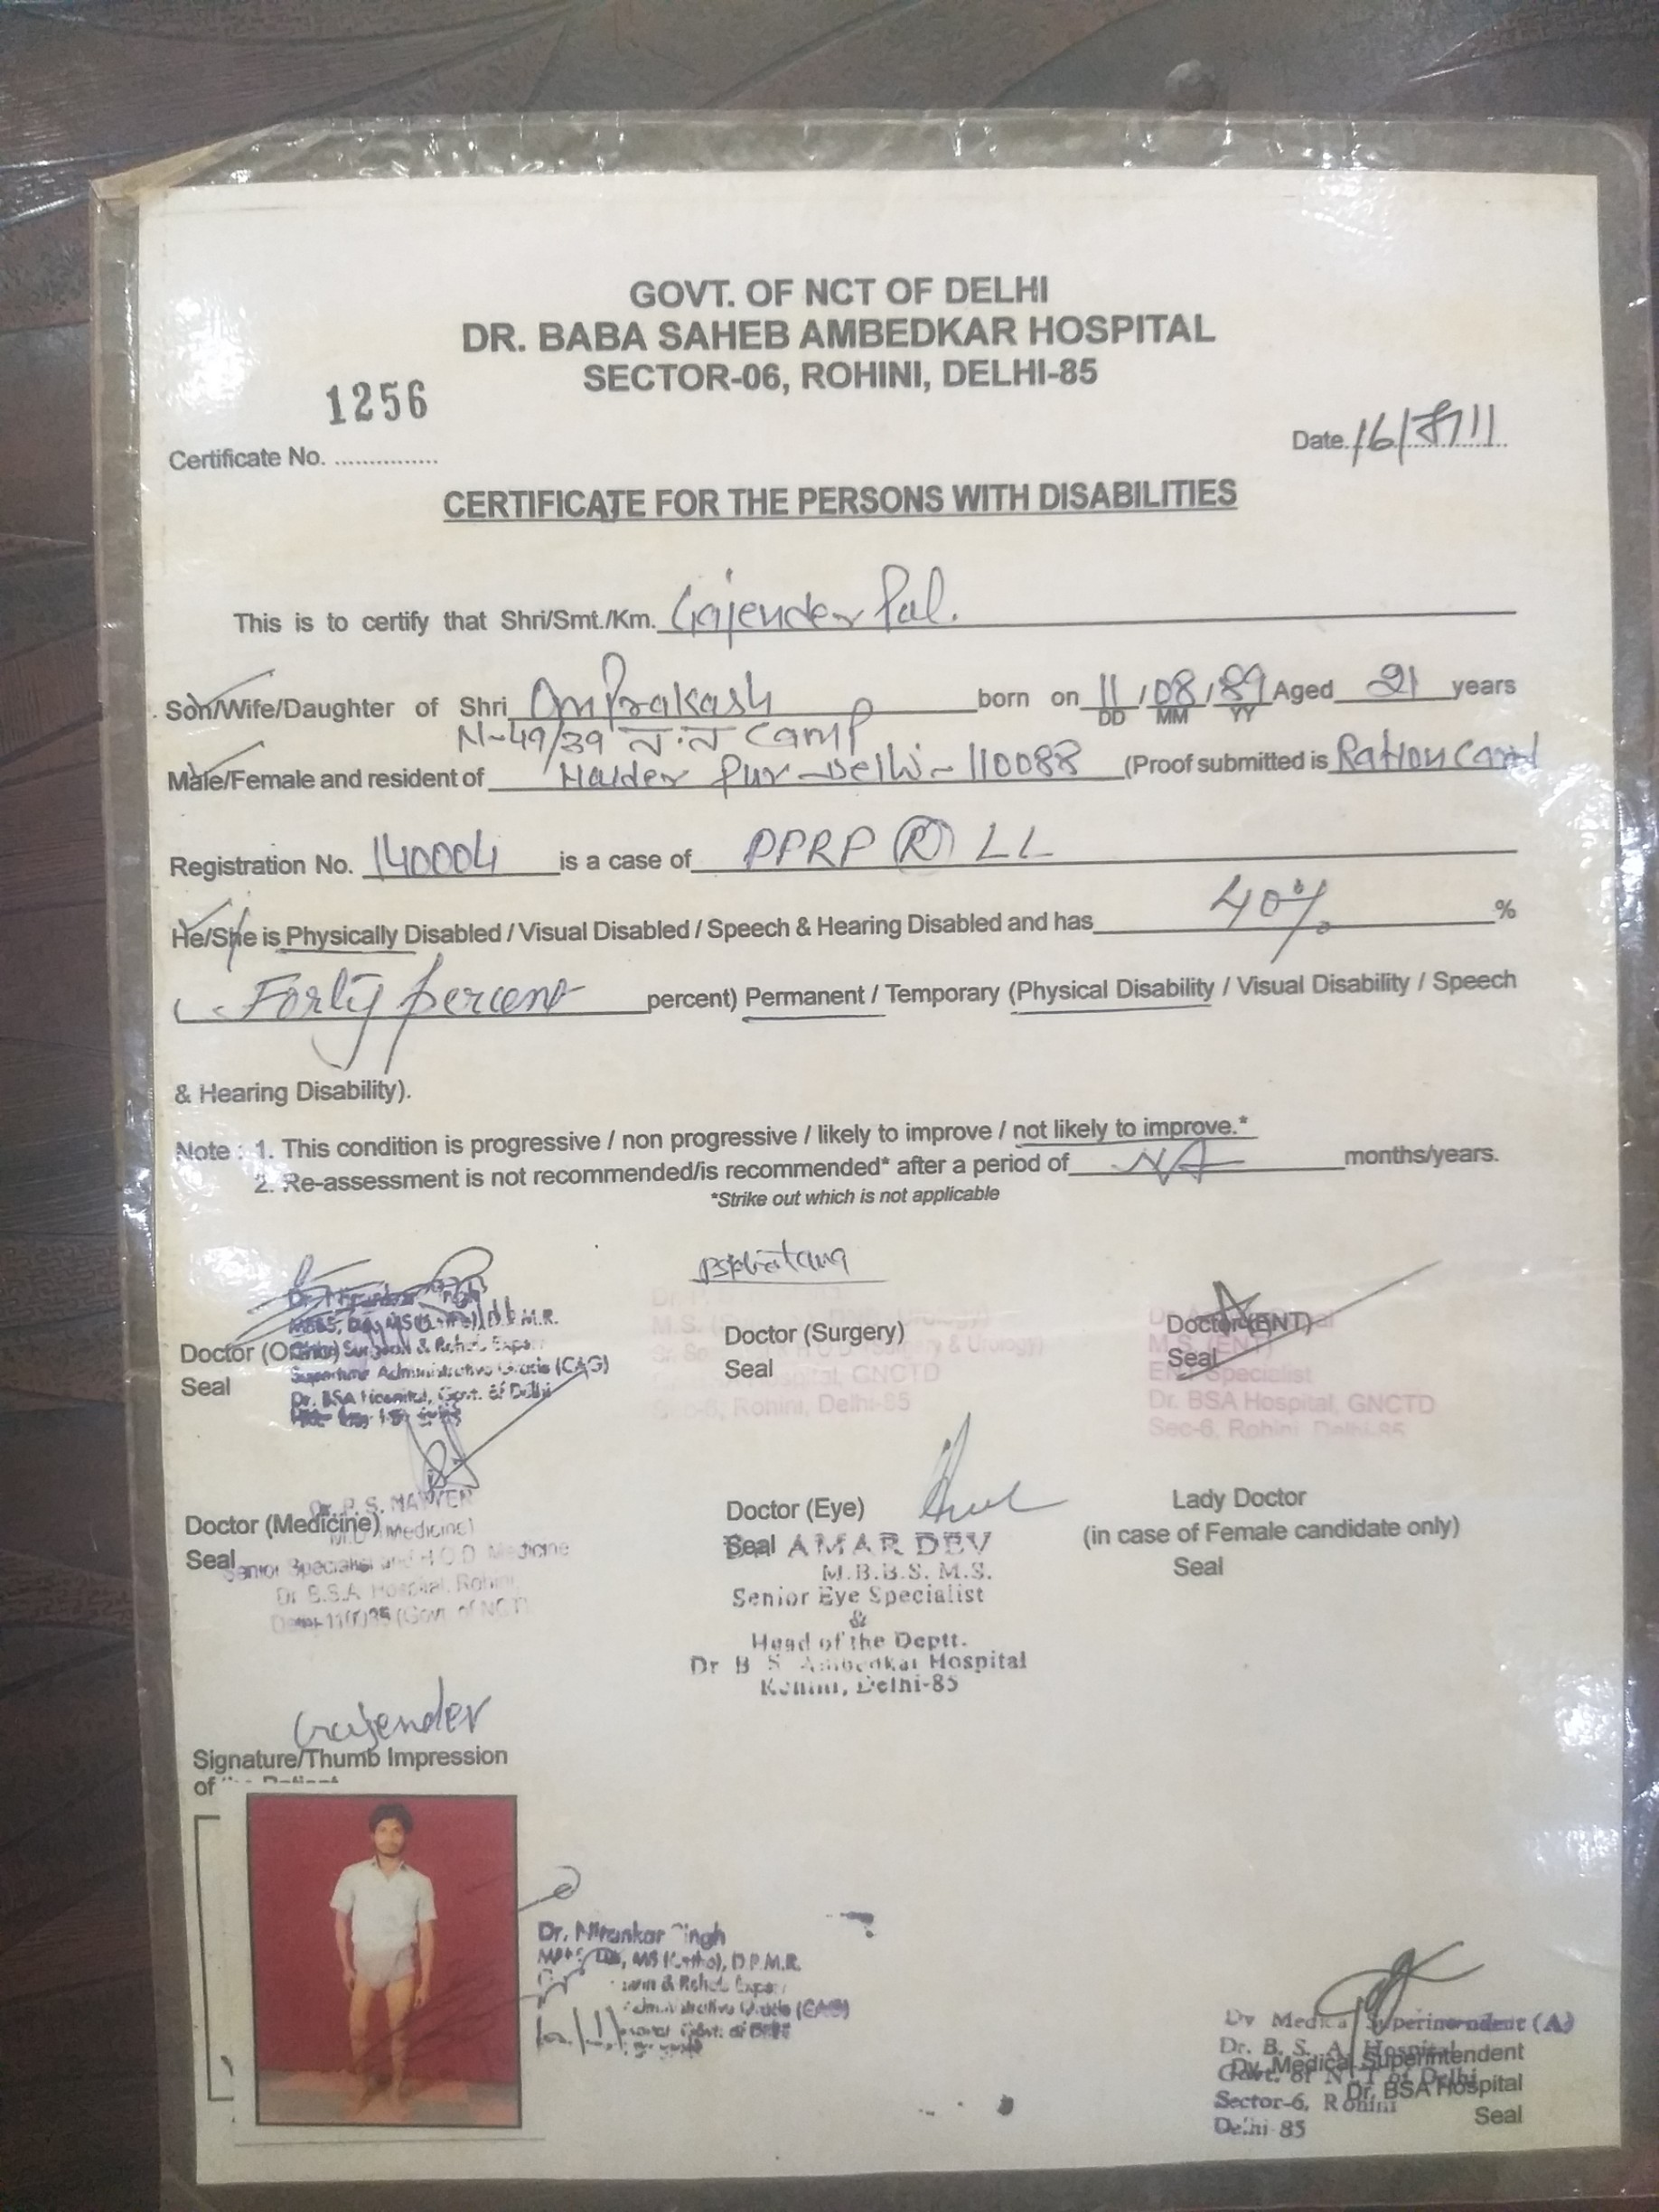 GOVT. OF NCT OF DELHI
DR. BABA SAHEB AMBEDKAR HOSPITAL
SECTOR-06, ROHINI, DELHI-85
1256
Certificate No. ...............
Date. 16/
CERTIFICATE FOR THE PERSONS WITH DISABILITIES
This is to certify that Shri/Smt./Km. Gajender Pal.
Son/Wife/Daughter of Shri Om Prakash born on 11/08/89 Aged 21 years
DD MM YY
N-49/39 न.न camp
Male/Female and resident of Haider pur-Delhi-110088 (Proof submitted is Ration card
Registration No. 140004 is a case of PPRP (R) LL
He/She is Physically Disabled / Visual Disabled / Speech & Hearing Disabled and has 40% %
( Forty percent percent) Permanent / Temporary (Physical Disability / Visual Disability / Speech
& Hearing Disability).
Note : 1. This condition is progressive / non progressive / likely to improve / not likely to improve.*
2. Re-assessment is not recommended/is recommended* after a period of NA months/years.
*Strike out which is not applicable
Doctor (Ortho)
Seal
Dr. Nirankar Singh
D.P.M.R.
Surgeon & Rehab. Exper
Administrative Grade (CAG)
Dr. BSA Hospital, Govt. of Delhi
Doctor (Surgery)
Seal
M.S.
Hospital, GNCTD
Sec-6, Rohini, Delhi-85
Doctor (ENT)
Seal
M.S. (ENT)
ENT Specialist
Dr. BSA Hospital, GNCTD
Sec-6, Rohini, Delhi-85
Doctor (Medicine)
Seal
Dr. P. S.
M.D. (Medicine)
Senior Specialist and H.O.D. Medicine
Dr B.S.A. Hospital, Rohini,
(Govt. of NCT)
Doctor (Eye)
Seal
AMAR DEV
M.B.B.S. M.S.
Senior Eye Specialist
&
Head of the Deptt.
Dr B S Ambedkar Hospital
Rohini, Delhi-85
Lady Doctor
(in case of Female candidate only)
Seal
Gajender
Signature/Thumb Impression
of the Patient
Dr. Nirankar Singh
MS (Ortho), D.P.M.R.
& Rehab. Exper
Administrative Grade (CAG)
Govt. of Delhi
Dy Medical Superintendent (A)
Dr. B. S. A. Hospital
Govt. of NCT of Delhi
Sector-6, Rohini
Delhi-85
Dy. Medical Superintendent
Dr. BSA Hospital
Seal